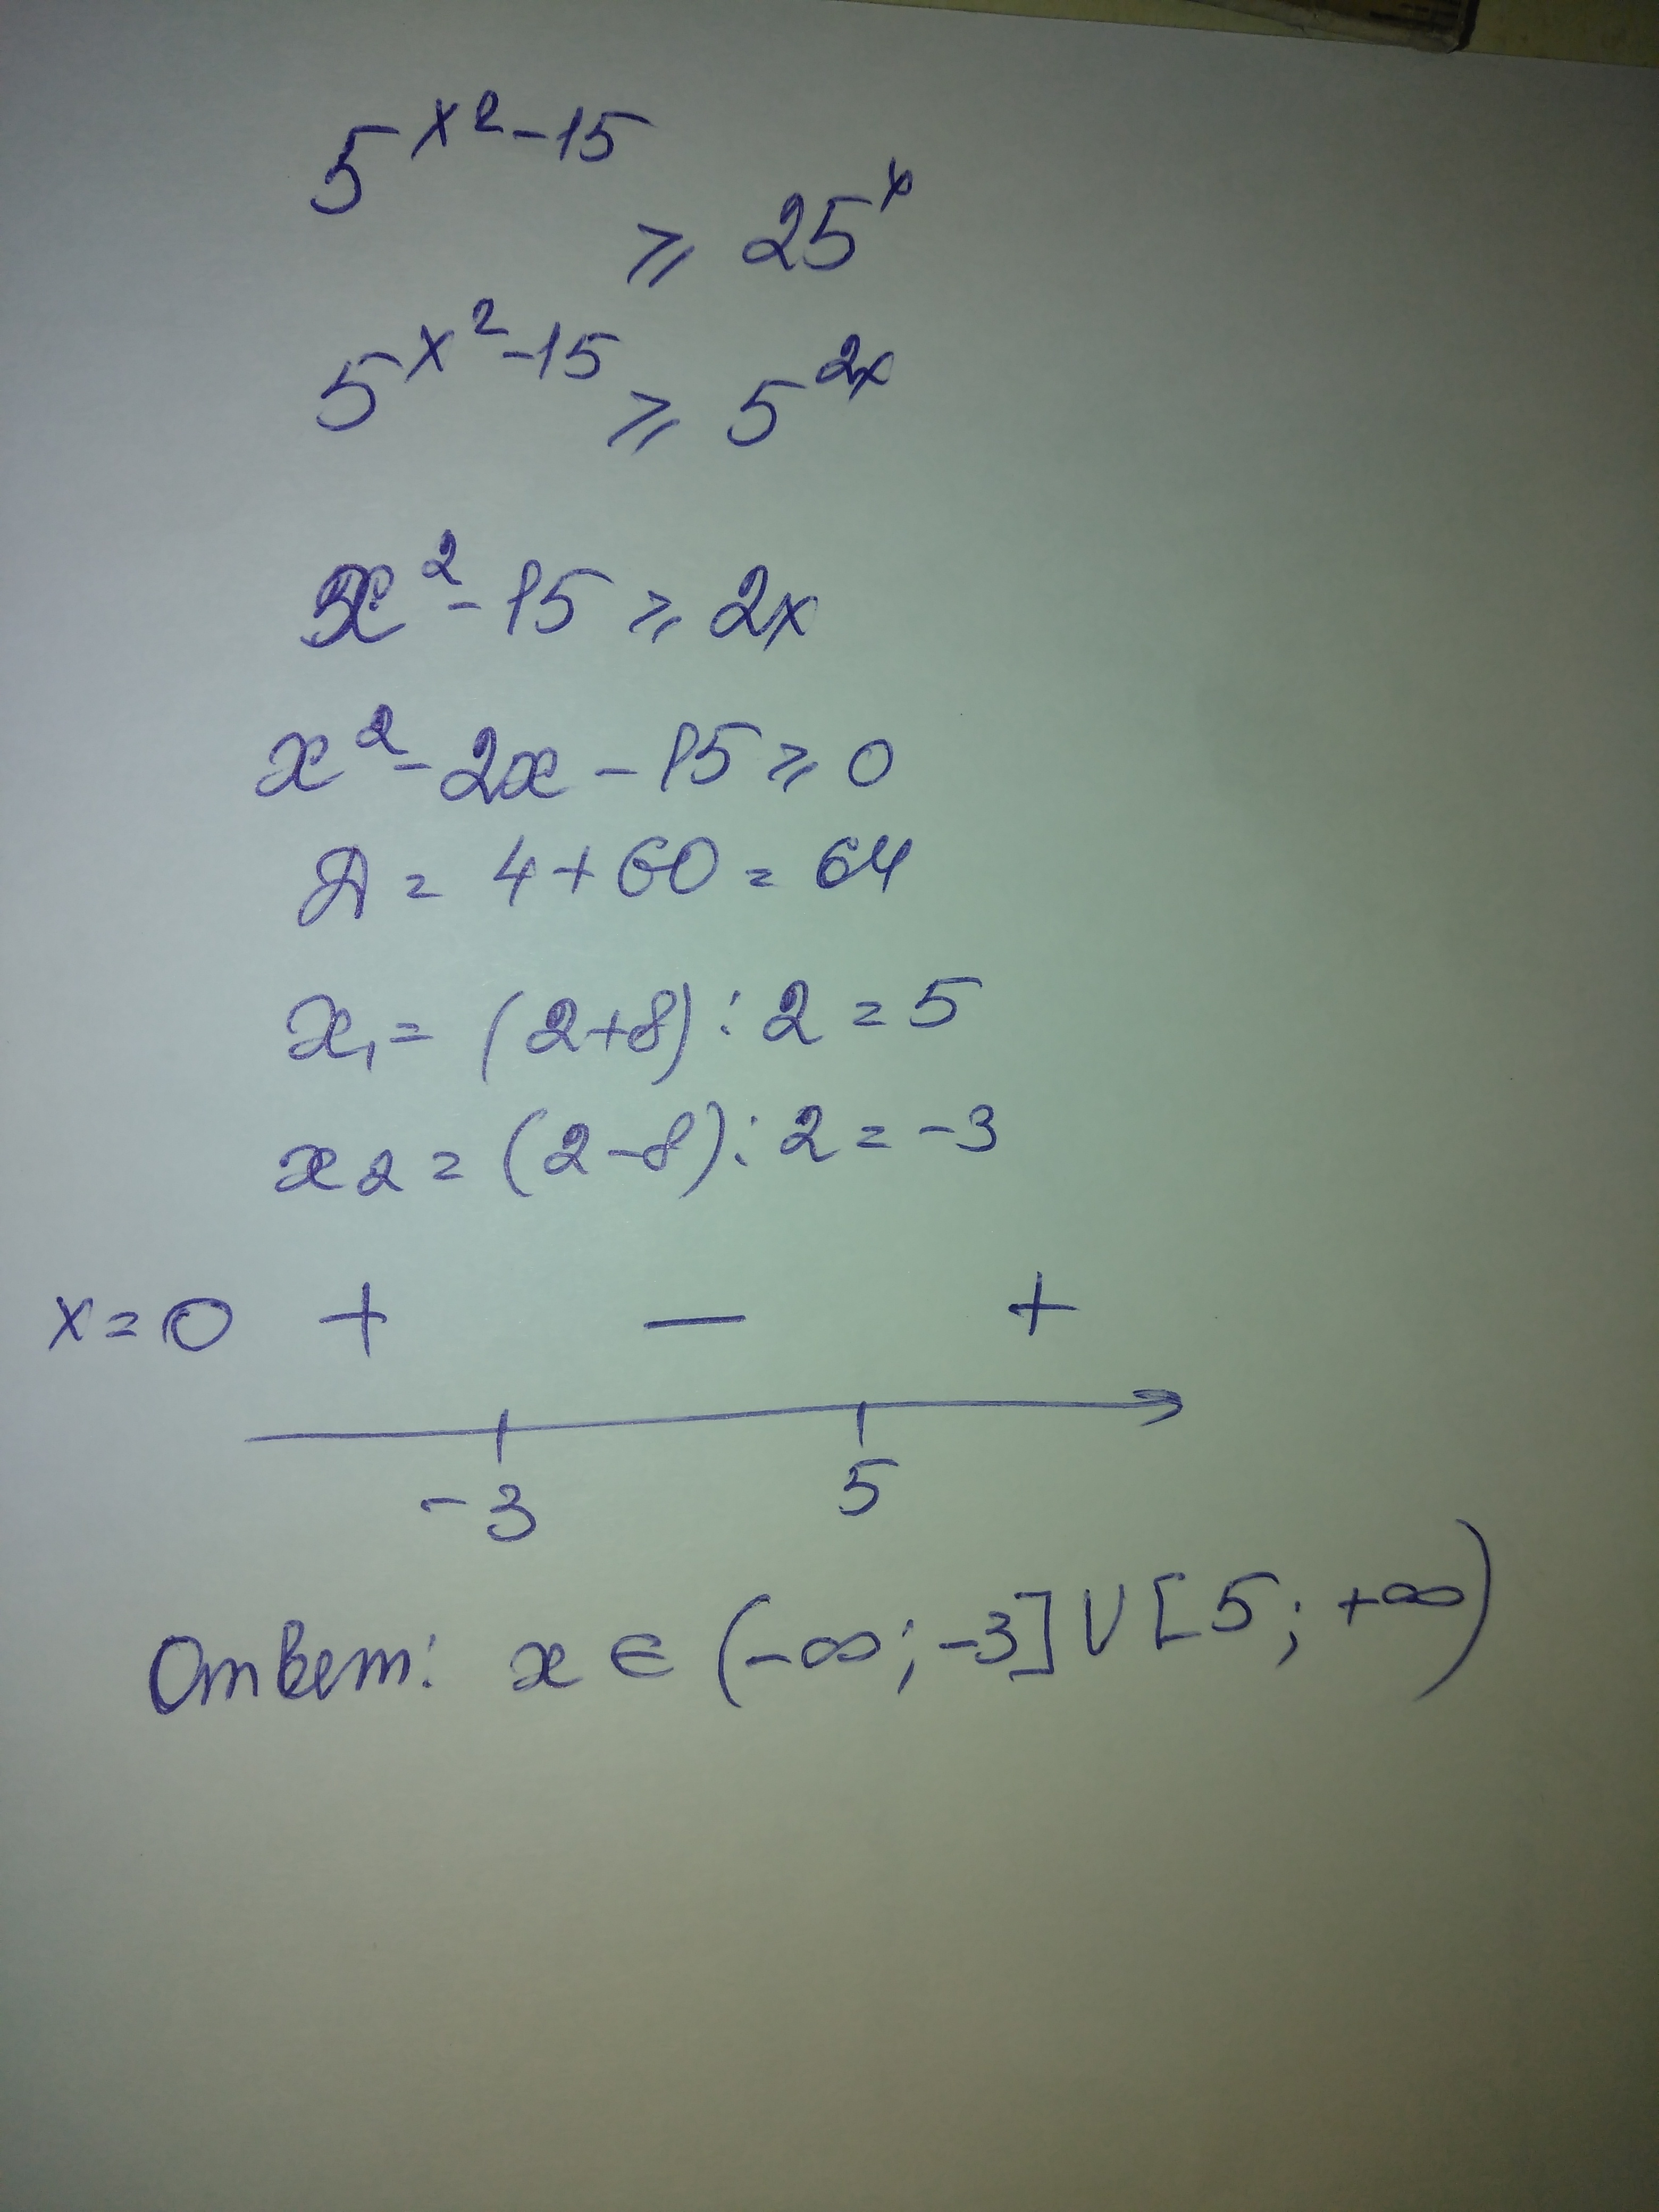 5^(x²-15) ⩾ 25^x
5^(x²-15) ⩾ 5^(2x)
x² - 15 ⩾ 2x
x² - 2x - 15 ⩾ 0
Д = 4 + 60 = 64
x₁ = (2+8) : 2 = 5
x₂ = (2-8) : 2 = -3
x = 0 + — +
-3 5
Ответ: x ∈ (-∞; -3] ∪ [5; +∞)